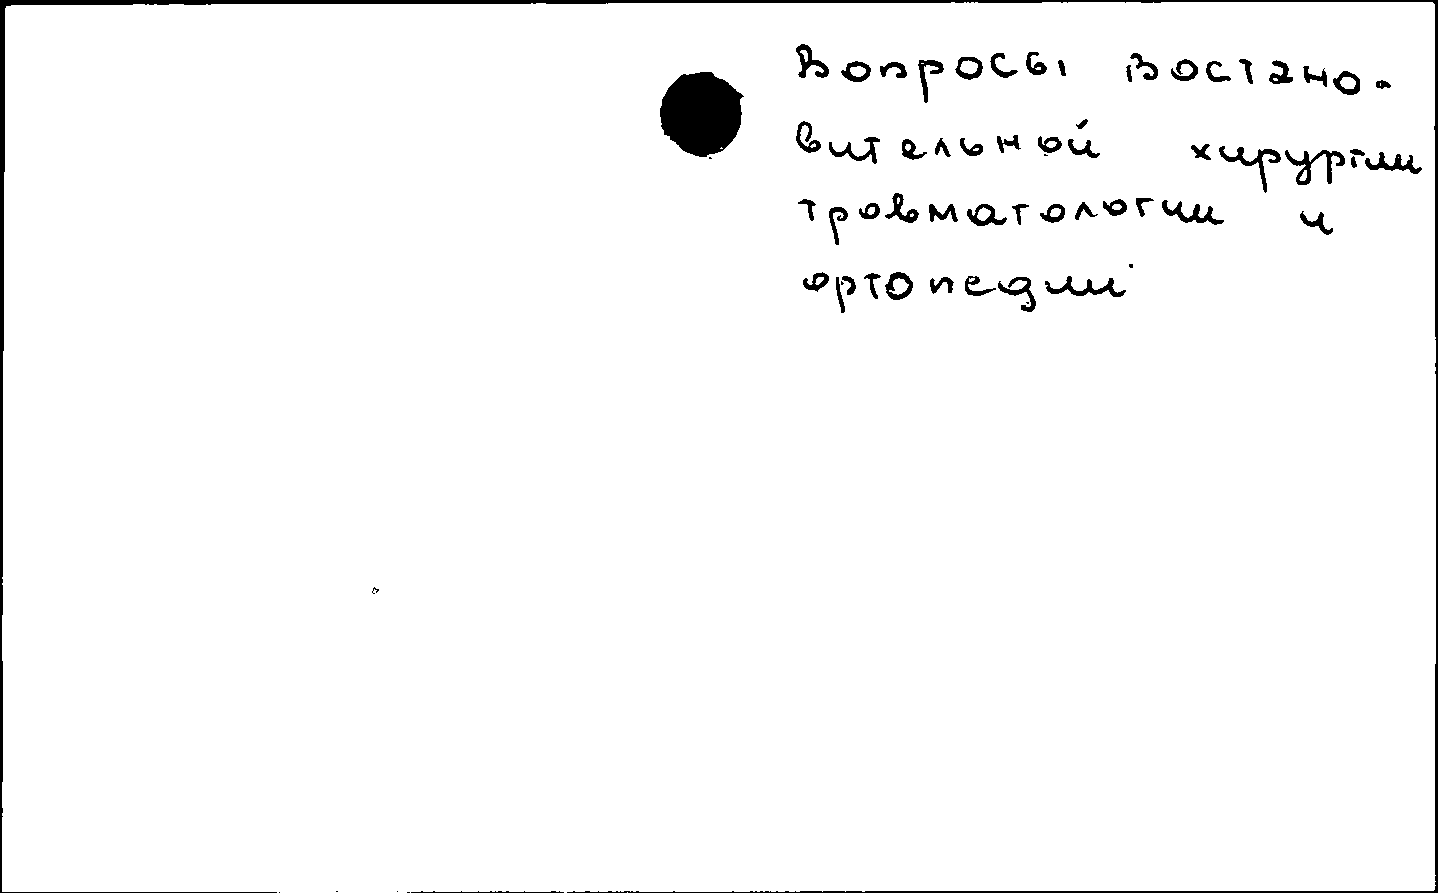 Вопросы востано-
вительной хирургии
тровматологии и
ортопедии